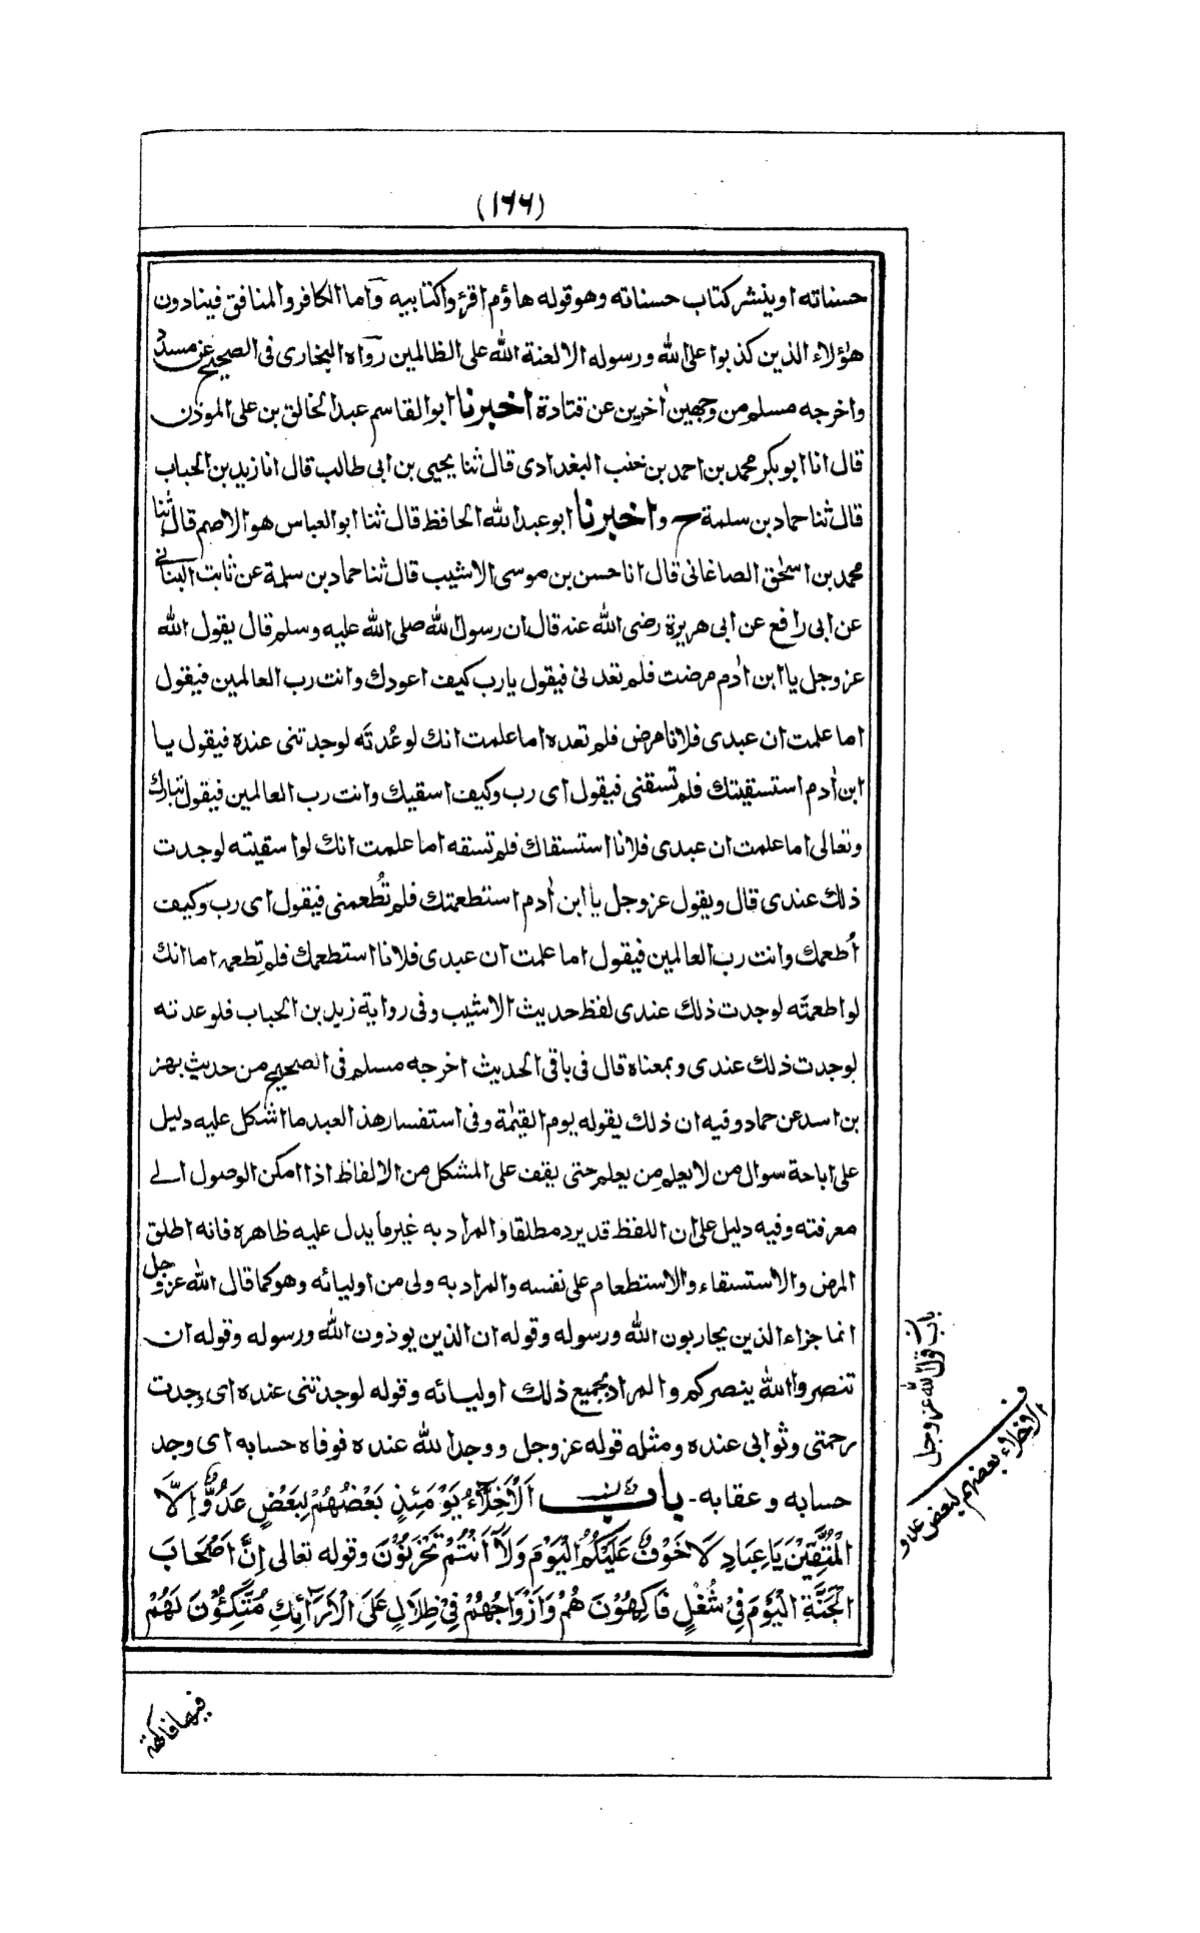 (۱۶۶)
حسناته اوينشر كتاب حسناته وهو قوله هاؤم اقرؤ واكتابيه واما الكافر والمنافق فينادون
هؤلاء الذين كذبوا على الله ورسوله الا لعنة الله على الظالمين رواه البخارى فى الصحيح عن مسدد
واخرجه مسلم من وجهين اٰخرين عن قتادة اخبرنا ابوالقاسم عبد الخالق بن على الموذن
قال انا ابو بكر محمد بن احمد بن خنب البغدادى قال ثنا يحيى بن ابى طالب قال انا زيد بن الحباب
قال ثنا حماد بن سلمة ح واخبرنا ابو عبد الله الحافظ قال ثنا ابو العباس هو الاصم قال ثنا
محمد بن اسحٰق الصاغانى قال انا حسن بن موسى الاشيب قال ثنا حماد بن سلمة عن ثابت البنانے
عن ابى رافع عن ابى هريرة رضى الله عنه قال ان رسول الله صلى الله عليه وسلم قال يقول الله
عز وجل يا ابن اٰدم مرضت فلم تعدنى فيقول يارب كيف اعودك وانت رب العالمين فيقول
اما علمت ان عبدى فلانا مرض فلم تعده اما علمت انك لو عُدتَه لوجدتنى عنده فيقول يا
ابن اٰدم استسقيتك فلم تسقنى فيقول اى رب وكيف اسقيك وانت رب العالمين فيقول تبارك
وتعالى اما علمت ان عبدى فلانا استسقاك فلم تسقه اما علمت انك لو اسقيته لوجدت
ذلك عندى قال ويقول عز وجل يا ابن اٰدم استطعمتك فلم تُطعمنى فيقول اى رب وكيف
اُطعمك وانت رب العالمين فيقول اما علمت ان عبدى فلانا استطعمك فلم تطعمه اما انك
لو اطعمتَه لوجدت ذلك عندى لفظ حديث الاشيب وفى رواية زيد بن الحباب فلو عدته
لوجدت ذلك عندى وبمعناه قال فى باقى الحديث اخرجه مسلم فى الصحيح من حديث بهز
بن اسد عن حماد وفيه ان ذلك يقوله يوم القيٰمة وفى استفسار هذ العبد ما اشكل عليه دليل
على اباحة سوال من لا يعلم من يعلم حتى يقف على المشكل من الالفاظ اذا امكن الوصول الے
معرفته وفيه دليل على ان اللفظ قد يرد مطلقا والمراد به غير ما يدل عليه ظاهره فانه اطلق
المرض والاستسقاء والاستطعام على نفسه والمراد به ولى من اوليائه وهو كما قال الله عز وجل
انما جزاء الذين يحاربون الله ورسوله وقوله ان الذين يوذون الله ورسوله وقوله ان
تنصروا الله ينصركم والمراد بجميع ذلك اوليائه وقوله لوجدتنى عنده اى وجدت
رحمتى وثوابى عنده ومثله قوله عز وجل ووجد الله عنده فوفاه حسابه اى وجد
حسابه وعقابه - باب اَلْاَخِلَّاءُ يَوْمَئِذٍ بَعْضُهُمْ لِبَعْضٍ عَدُوٌّ اِلَّا
الْمُتَّقِيْنَ يَاعِبَادِ لَا خَوْفٌ عَلَيْكُمُ الْيَوْمَ وَلَا اَنْتُمْ تَحْزَنُوْنَ وقوله تعالى اِنَّ اَصْحَابَ
الْجَنَّةِ الْيَوْمَ فِيْ شُغُلٍ فَاكِهُوْنَ هُمْ وَاَزْوَاجُهُمْ فِيْ ظِلَالٍ عَلَى الْاَرَائِكِ مُتَّكِئُوْنَ لَهُمْ
باب قول الله عز وجل
الاخلاء بعضهم لبعض عدو
فيها فاكهة